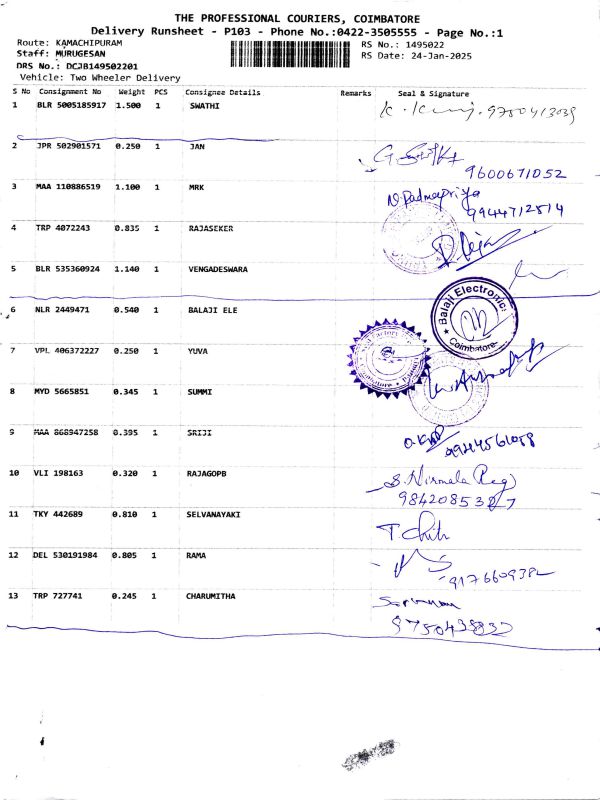 THE PROFESSIONAL COURIERS, COIMBATORE
Delivery Runsheet - P103 - Phone No.:0422-3505555 - Page No.:1
Route: KAMACHIPURAM
Staff: MURUGESAN
DRS No.: DCJB149502201
Vehicle: Two Wheeler Delivery
RS No.: 1495022
RS Date: 24-Jan-2025
S No Consignment No Weight PCS Consignee Details Remarks Seal & Signature
1 BLR 5005185917 1.500 1 SWATHI
2 JPR 502901571 0.250 1 JAN
9600671052
3 MAA 110886519 1.100 1 MRK N.Padmapriya
9944712814
4 TRP 4072243 0.835 1 RAJASEKER
5 BLR 535360924 1.140 1 VENGADESWARA
6 NLR 2449471 0.540 1 BALAJI ELE
Balaji Electronics
Coimbatore
7 VPL 406372227 0.250 1 YUVA
8 MYD 5665851 0.345 1 SUMMI
9 MAA 868947258 0.395 1 SRIJI
10 VLI 198163 0.320 1 RAJAGOPB S. Nirmala
11 TKY 442689 0.810 1 SELVANAYAKI
12 DEL 530191984 0.805 1 RAMA
13 TRP 727741 0.245 1 CHARUMITHA